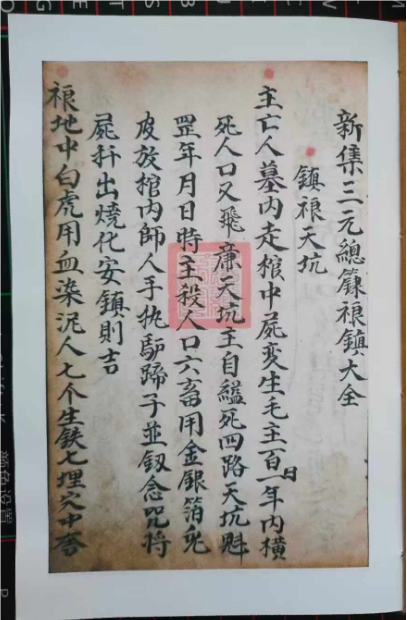 新集三元總籙禳鎮大全
鎮禳天坑
主亡人墓内走棺中屍变生毛主百日一年内橫
死人口又飛廉天坑主自縊死四路天坑魁
罡年月日時主殺人口六畜用金銀箔兎
皮放棺内師人手执馿蹄子並釼念咒将
屍扞出燒化安鎮則吉
禳地中白虎用血染泥人七个生铁七埋穴中